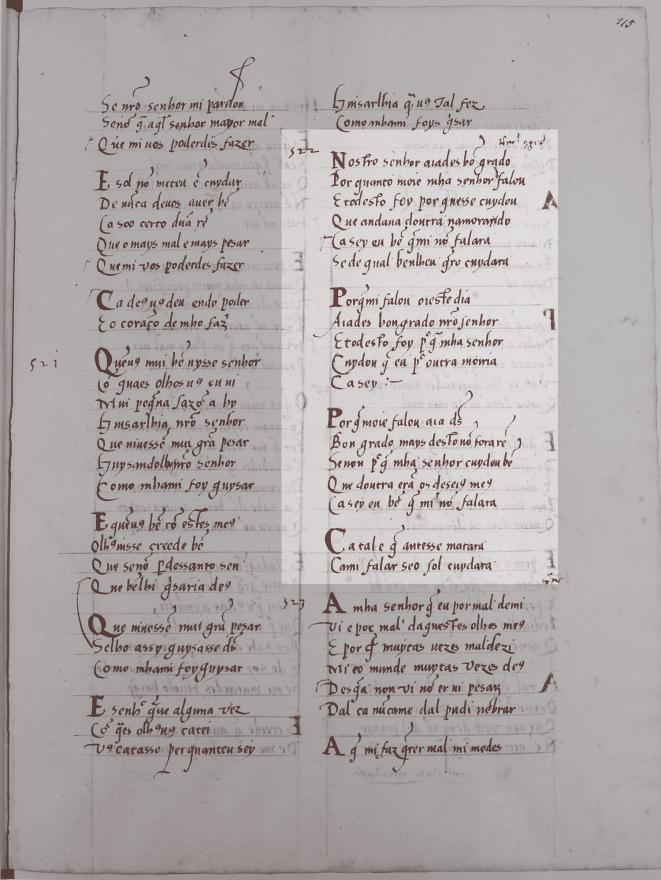 115
Se nr̃o senhor mi pardon
Senõ q̃ aq̃l senhor mayor mal
Que mi vos poderdes fazer
E sol nõ meteu ẽ cuydar
De nũca deues auer bẽ
Ca soo certo dũa rẽ
Que o mays mal e mays pesar
Que mi vos poderdes fazer
Ca de9 u9 deu endo poder
E o coraçõ de mho faz
521
Que u9 mui bẽ uysse senhor
Cõ quaes olhos u9 eu ui
Mui peq̃na sazõ a hy
Guisarlhia nr̃o senhor
Que uiuesse mui grã pesar
Guysandolho nr̃o senhor
Como mhami foy guysar
E quẽ u9 bẽ cõ estes me9
Olh9 uisse creede bẽ
Que senõ perdessanto sen
Que bẽ lhi guisaria de9
Que uiuesse mui grã pesar
Selho assy guysasse d̃s
Como mhami foy guysar
E senhor que alguna vez
Cõ q̃es olh9 u9 catei
Vos catasse per quanteu sey
Guisarlhia q̃ u9 tal fez
Como mhami foys g̃sar
522
Nostro senhor aiades bõ grado
Por quanto moie mha senhor falou
E todesto foy por quesse cuydou
Que andaua doutra namorado
Ca sey eu bẽ q̃ mi nõ falara
Se de qual ben lheu q̃ro cuydara
Porq̃ mi falou oieste dia
Aiades bon grado nr̃o senhor
E todesto foy p̃ q̃ mha senhor
Cuydou q̃ eu p̃ outra morria
Ca sey :~
Porq̃ moie falou aia d̃s
Bon grado mays desto nõ forarẽ
Senon p̃ q̃ mha senhor cuydou bẽ
Que doutra erã os deseios me9
Ca sey eu bẽ q̃ mi nõ falara
Ca tal e q̃ antesse matara
Cami falar seo sol cuydara
523
A mha senhor q̃ eu por mal demi
Vi e por mal daquestes olhos me9
E por q̃ muytas vezes maldezi
Mi e o mundo muytas vezes de9
Desq̃a non vi nõ er ui pesar
Dal ca nũca me dal pudi nẽbrar
A q̃ mi faz q̃rer mal mi medes